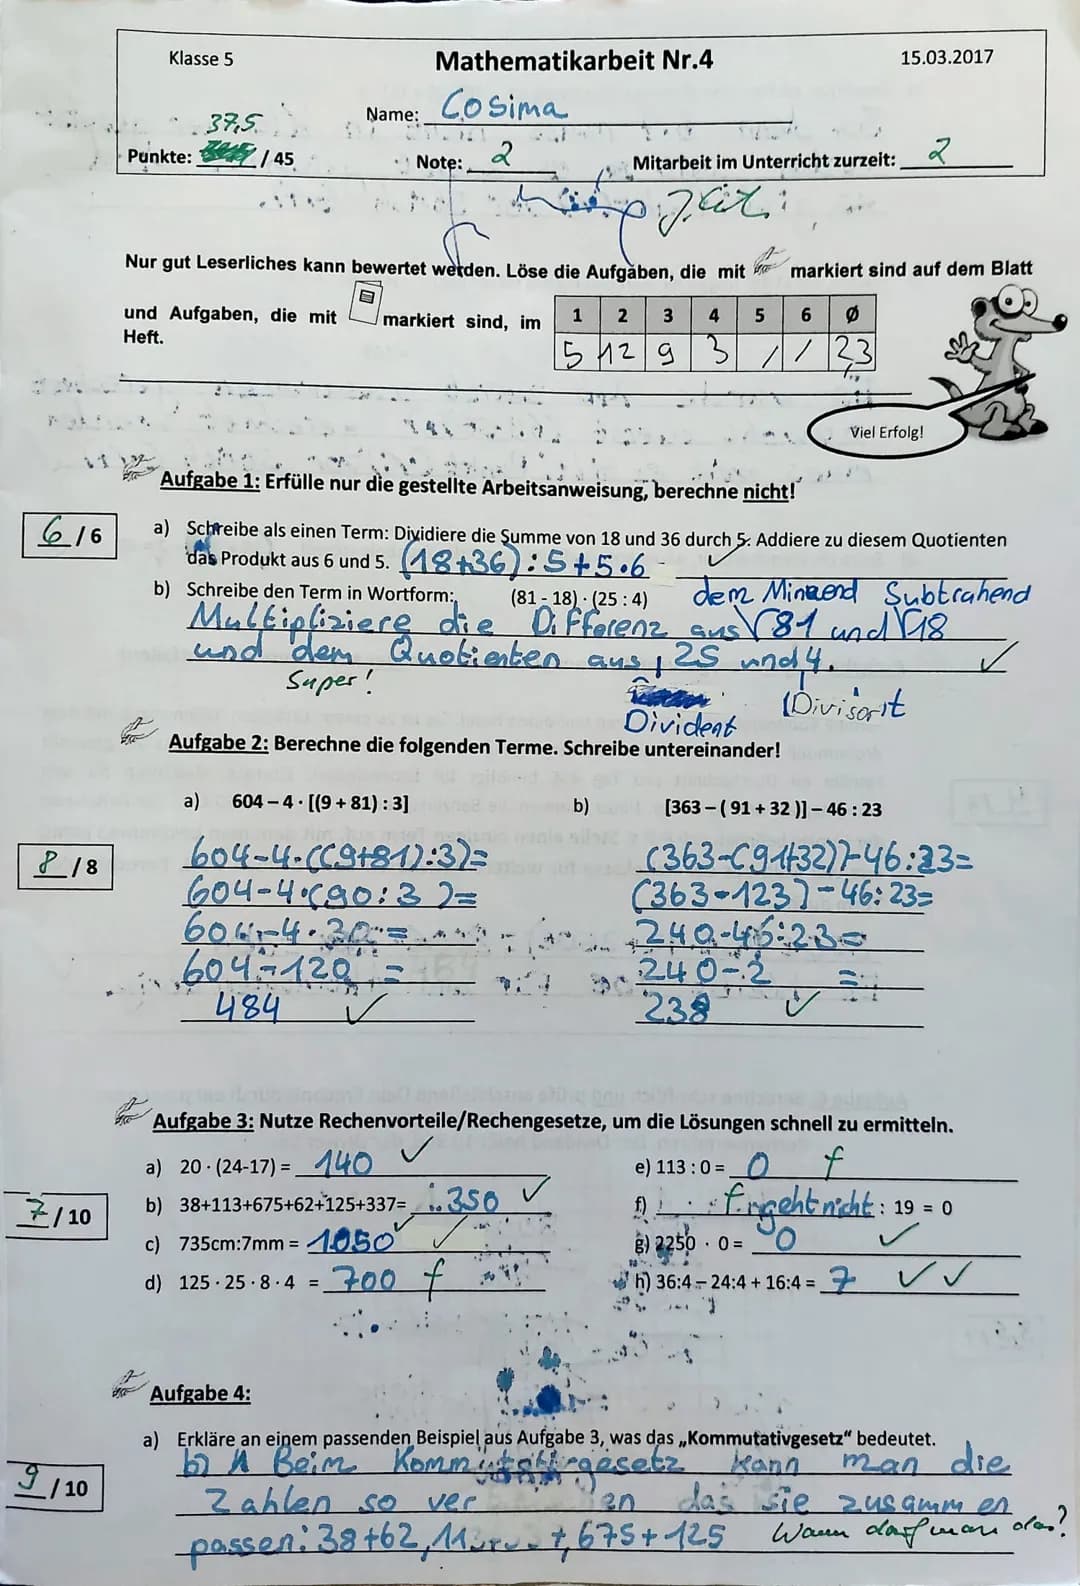 Klasse 5 Mathematikarbeit Nr.4 15.03.2017
Name: Cosima
37,5
Punkte: / 45 Note: 2 Mitarbeit im Unterricht zurzeit: 2
Nur gut Leserliches kann bewertet werden. Löse die Aufgaben, die mit markiert sind auf dem Blatt
und Aufgaben, die mit markiert sind, im
Heft.
1 2 3 4 5 6 Ø
5 12 9 3 / / 2,3
Viel Erfolg!
Aufgabe 1: Erfülle nur die gestellte Arbeitsanweisung, berechne nicht!
6 / 6
a) Schreibe als einen Term: Dividiere die Summe von 18 und 36 durch 5. Addiere zu diesem Quotienten
das Produkt aus 6 und 5. (18+36):5+5·6
b) Schreibe den Term in Wortform: (81 - 18) · (25 : 4) dem Subtrahend
Multipliziere die Differenz aus 81 und 18
und dem Quotienten aus 25 und 4.
Super!
Divident
Aufgabe 2: Berechne die folgenden Terme. Schreibe untereinander!
8 / 8
a) 604 – 4 · [(9 + 81) : 3]
604-4·((9+81):3)=
604-4·(90:3)=
604-4·30=
604-120=
484
b) [363 – ( 91 + 32 )] – 46 : 23
(363-(91+32))-46:23=
(363-123)-46:23=
240-46:23=
240-2=
238
Aufgabe 3: Nutze Rechenvorteile/Rechengesetze, um die Lösungen schnell zu ermitteln.
7 / 10
a) 20 · (24-17) = 140
b) 38+113+675+62+125+337= 1.350
c) 735cm:7mm = 1050
d) 125 · 25 · 8 · 4 = 700 f
e) 113 : 0 = 0 f
f) f geht nicht : 19 = 0
g) 2250 · 0 = 0
h) 36:4 – 24:4 + 16:4 = 7
Aufgabe 4:
9 / 10
a) Erkläre an einem passenden Beispiel aus Aufgabe 3, was das „Kommutativgesetz“ bedeutet.
b) Beim Kommutativgesetz kann man die
Zahlen so das sie zusammen
passen: 38+62, 675+125 Wann darf man das?